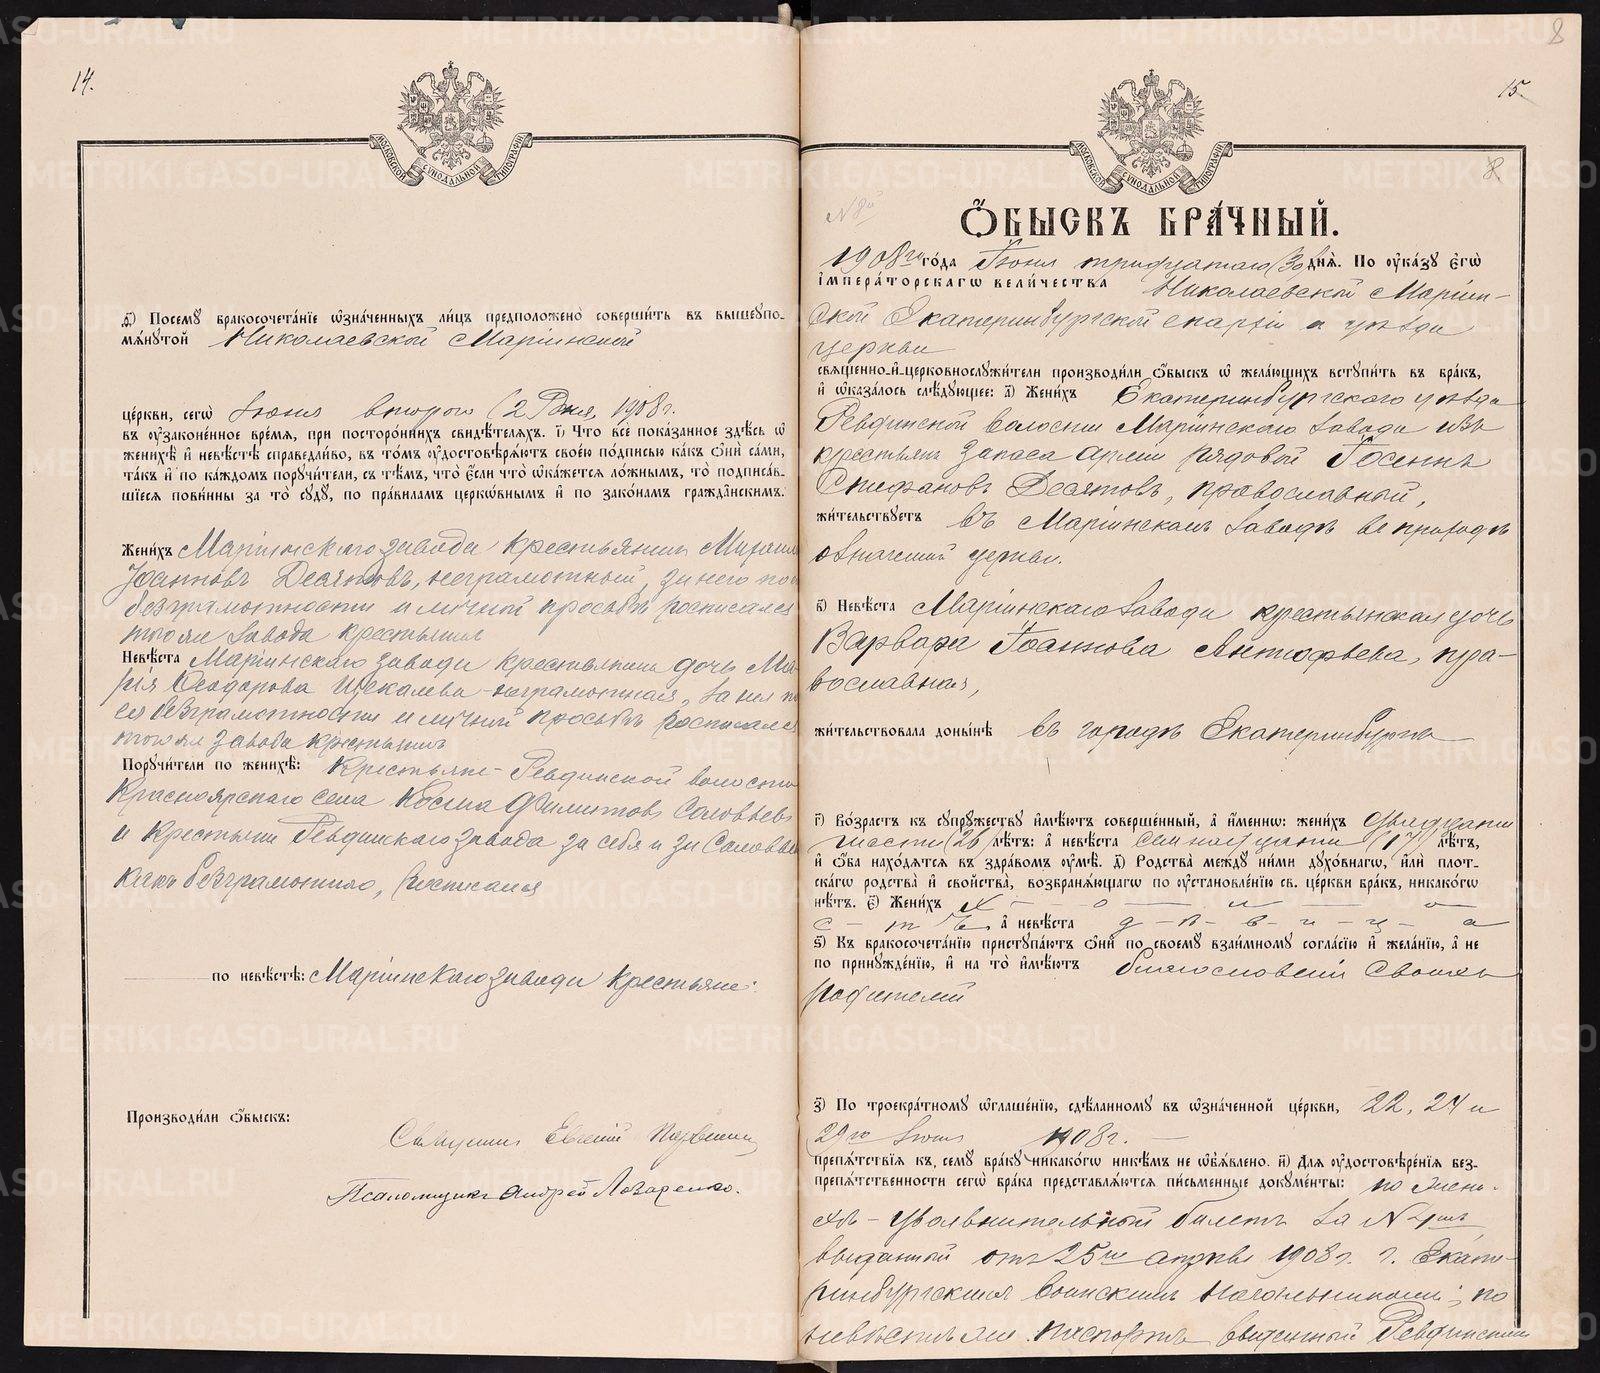 14.
МОСКОВСКОЙ СѴНОДАЛЬНОЙ ТИПОГРАФІИ
ѳ҃) Посемꙋ бракосочета́нїе ѡзна́ченныхъ ли́цъ предположено̀ соверши́ть въ вышеꙋпо-
мѧ́нꙋтой Николаевской Маріинской
це́ркви, сегѡ̀ Іюня второго (2 Дня, 1908 г.
въ ᲂу҆зако́ненное вре́мѧ, при посторо́ннихъ свидѣ́телѧхъ. і҃) Что̀ всѐ пока́занное здѣ́сь ѡ҆
женихѣ̀ и҆ невѣ́стѣ справедли́во, въ то́мъ ᲂу҆достовѣрѧ́ютъ свое́ю по́дписью ка́къ ѻ҆нѝ са́ми,
та́къ и҆ по ка́ждомъ порꙋчи́тели, съ тѣ́мъ, что̀ є҆́сли что̀ ѡ҆ка́жетсѧ ло́жнымъ, то̀ подписа́в-
шїесѧ пови́нны за то̀ сꙋдꙋ̀, по пра́виламъ церко́внымъ и҆ по зако́намъ гражда́нскимъ.
Жени́хъ Маріинскаго завода крестьянин Михаил
Іоаннов Десятовъ, неграмотный, за него по
безграмотности и личной просьбѣ росписался
того же завода крестьянин
Невѣ́ста Маріинскаго завода крестьянина дочь Ма-
рія Ѳеодорова Щекалева - неграмотная, за нея по
ея безграмотности и личной просьбѣ росписался
того же завода крестьянинъ
Порꙋчи́тели по женихѣ̀: Крестьяне Ревдинской волости
Красноярскаго села Косма Филиппов Соловьевъ
и крестьянин Ревдинскаго завода за себя и за Соловьева
какъ безграмотнаго, росписался
по невѣ́стѣ: Маріинскаго завода крестьяне:
Производи́ли ѻ҆́быскъ:
Священник Евгеній
Псаломщикъ Андрей Лазаренко.
8
15.
МОСКОВСКОЙ СѴНОДАЛЬНОЙ ТИПОГРАФІИ
8
N 8й
Ѻ҆́БЫСКЪ БРА́ЧНЫЙ.
1908го го́да Іюня тридцатаго (30 днѧ̀. По ᲂу҆ка́зꙋ є҆гѡ̀
і҆мпера́торскагѡ вели́чества Николаевской Маріин-
ской Екатеринбургской епархіи и уѣзда
церкви
свѧще́нно-и҆-церковнослꙋжи́тели производи́ли ѻ҆́быскъ ѡ҆ жела́ющихъ встꙋпи́ть въ бра́къ,
и҆ ѡ҆каза́лось слѣ́дꙋющее: а҃) Жени́хъ Екатеринбургскаго уѣзда
Ревдинской волости Маріинскаго завода изъ
крестьян запаса арміи рядовой Іосифъ
Стефановъ Десятовъ, православный,
жи́тельствꙋетъ въ Маріинскомъ заводѣ въ приходѣ
означеной церкви.
в҃) Невѣ́ста Маріинскаго завода крестьянская дочь
Варвара Іоаннова Антюфѣева, пра-
вославная,
жи́тельствовала донынѣ̀ въ городѣ Екатеринбургѣ
г҃) Во́зрастъ къ сꙋпрꙋ́жествꙋ и҆мѣ́ютъ соверше́нный, а҆ и҆́меннѡ: жени́хъ двадцати
шести (26) лѣ́тъ: а҆ невѣ́ста семнадцати (17) лѣ́тъ,
и҆ ѻ҆́ба нахо́дѧтсѧ въ здра́вомъ ᲂу҆мѣ̀. д҃) Родства̀ ме́ждꙋ ни́ми дꙋхо́внагѡ, и҆лѝ пло́т-
скагѡ родства̀ и҆ сво́йства, возбранѧ́ющагѡ по ᲂу҆становле́нїю св. це́ркви бра́къ, никако́гѡ
нѣ́тъ. є҃) Жени́хъ х - о - л - о -
с - т ъ, а҆ невѣ́ста д - ѣ - в - и - ц - а
ѕ҃) Къ бракосочета́нїю пристꙋпа́ютъ ѻ҆нѝ по своемꙋ̀ взаи́мномꙋ согла́сїю и҆ жела́нїю, а҆ не
по принꙋжде́нїю, и҆ на то̀ и҆мѣ́ютъ благословеніе своихъ
родителей
з҃) По троекра́тномꙋ ѡ҆глаше́нїю, сдѣ́ланномꙋ въ ѡзна́ченной це́ркви, 22, 24 и
29го Іюня 1908 г.
препѧ́тствїѧ къ семꙋ̀ бра́кꙋ никако́гѡ никѣ́мъ не ѡ҆б̾ѧ́влено. и҃) Длѧ ᲂу҆достовѣре́нїѧ без-
препѧ́тственности сегѡ̀ бра́ка представлѧ́ютсѧ пи́сьменные докꙋме́нты: по жени-
хѣ - увольнительный билетъ за N
выданный отъ 25го апрѣля 1908 г. г. Екате-
ринбургскимъ воинскимъ начальникомъ; по
невѣстѣ же паспортъ выданный Ревдинскимъ